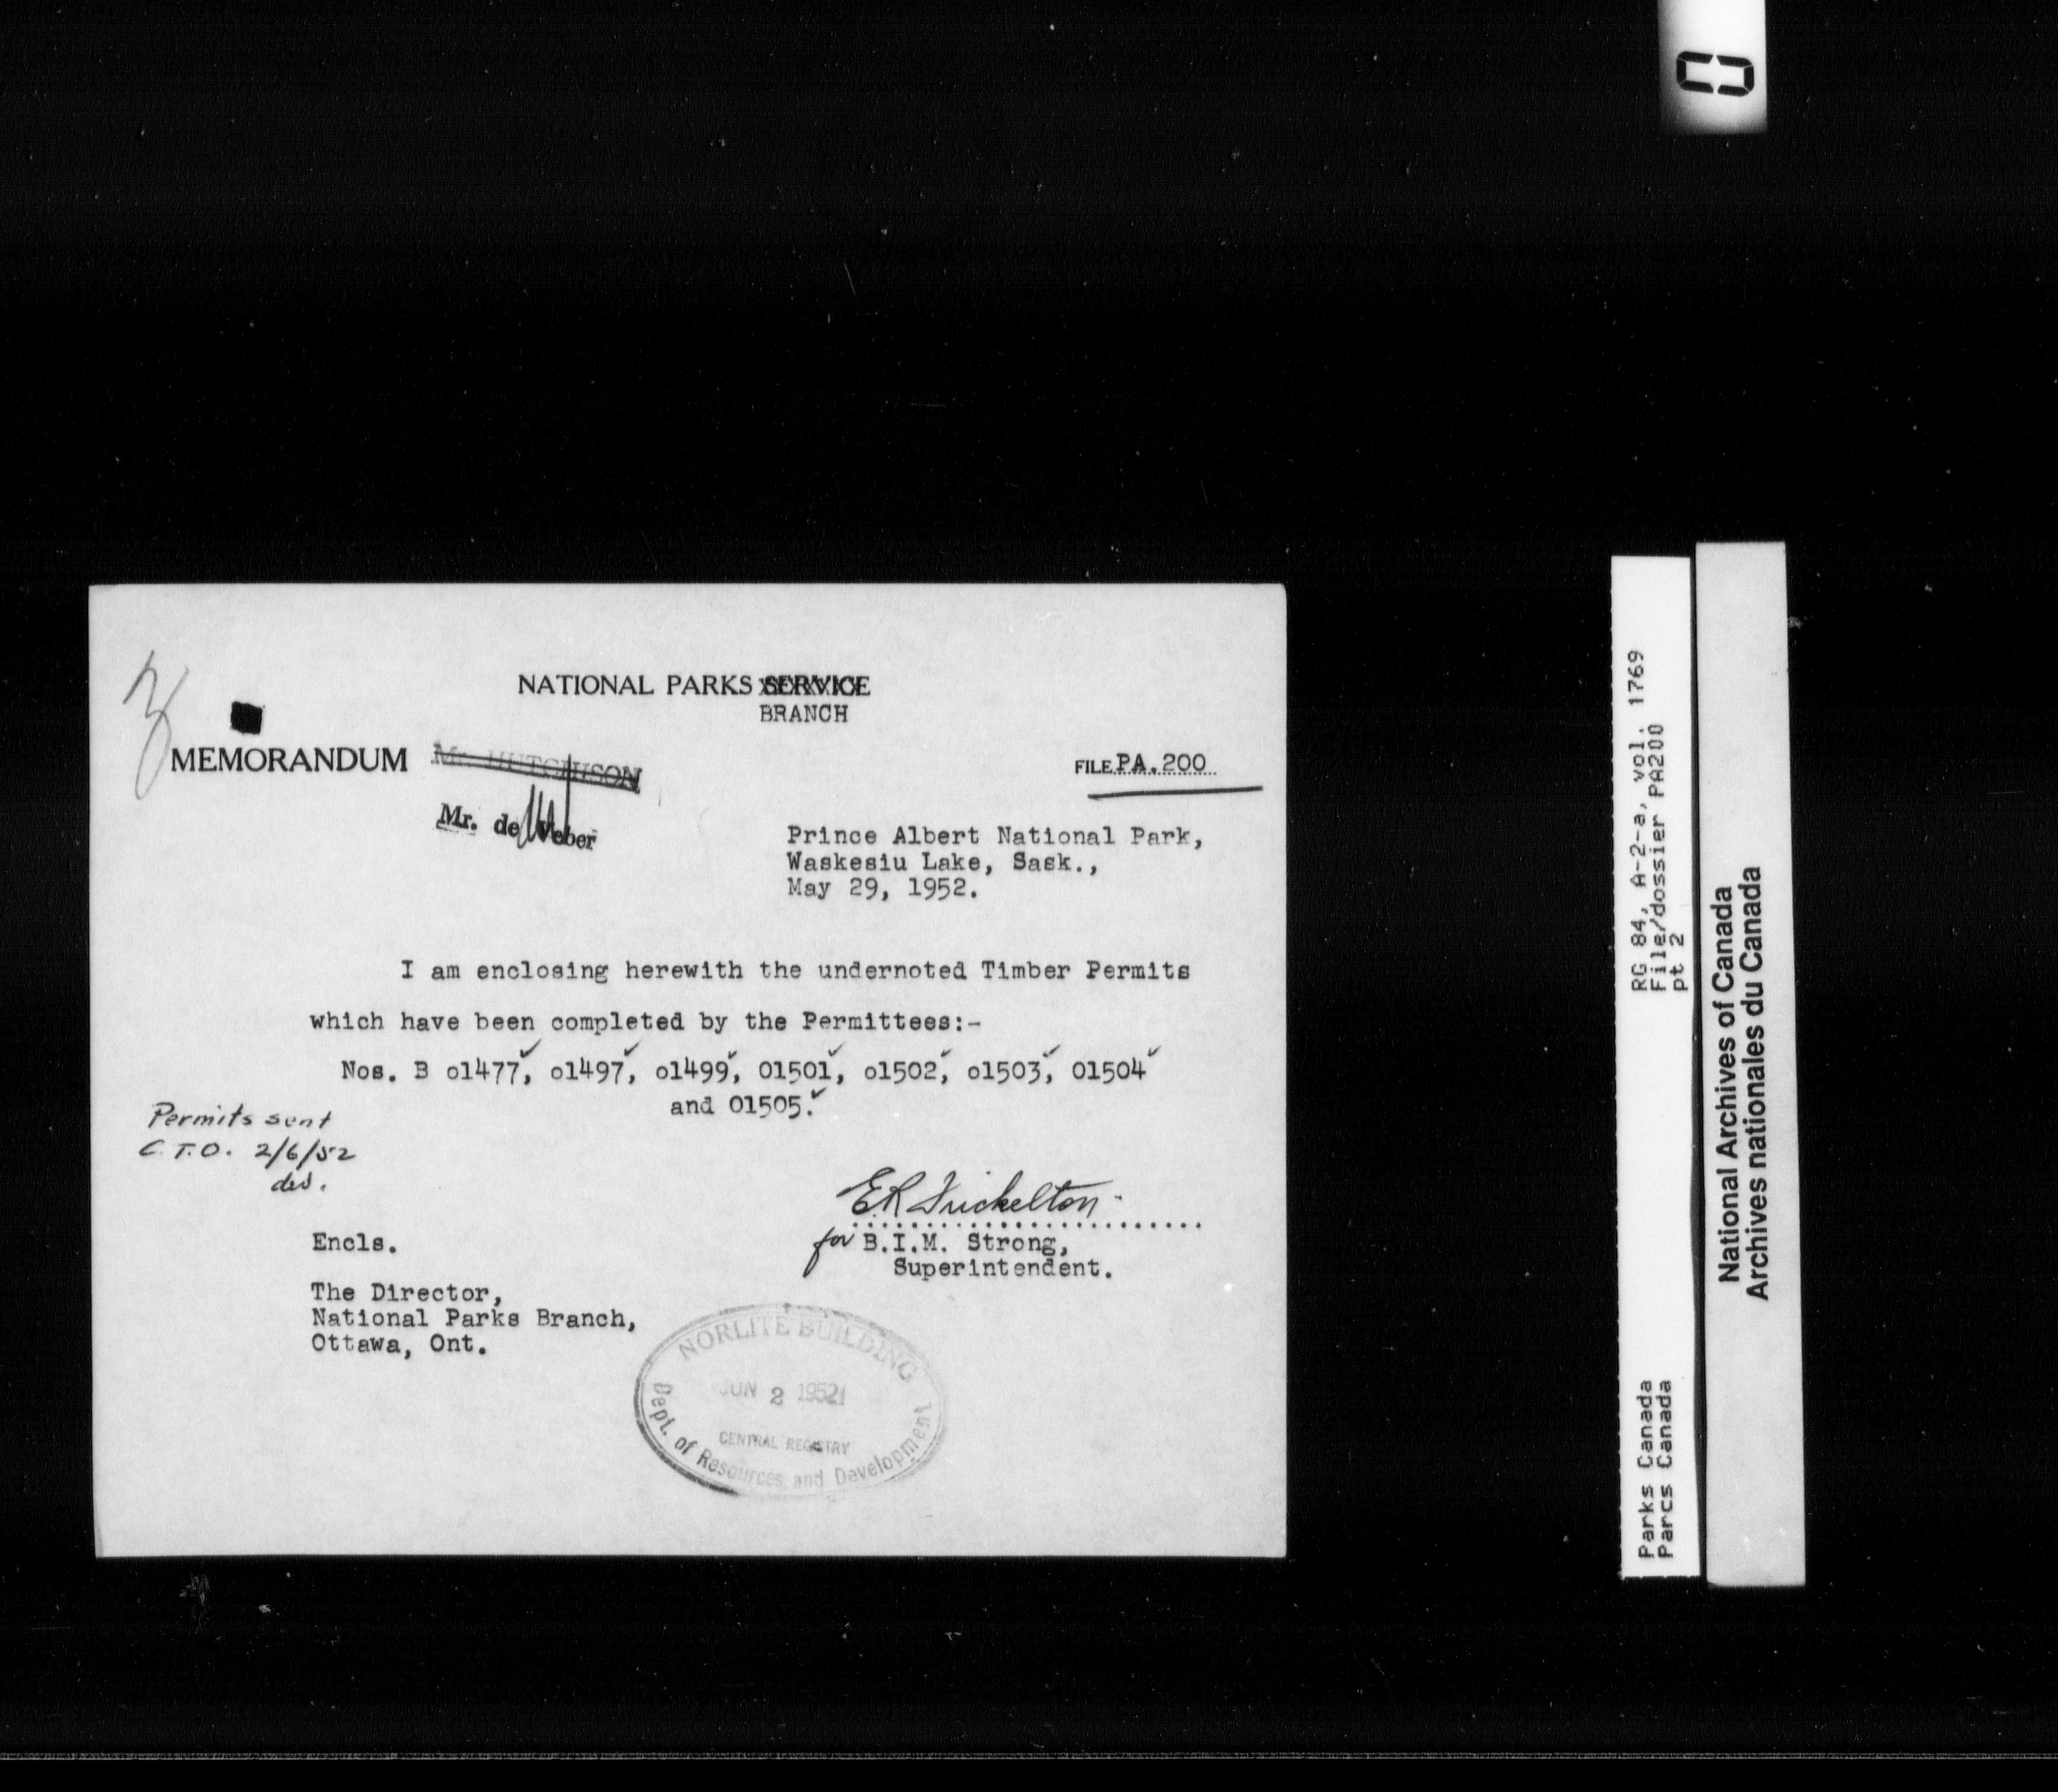 NATIONAL PARKS SERVICE
BRANCH
MEMORANDUM
Mr. HUTCHISON
FILE PA.200
Mr. de Weber
Prince Albert National Park,
Waskesiu Lake, Sask.,
May 29, 1952.
I am enclosing herewith the undernoted Timber Permits
which have been completed by the Permittees:-
Nos. B o1477, o1497, o1499, O1501, o1502, o1503, O1504
and O1505.
Permits sent
C.T.O. 2/6/52
for B.I.M. Strong,
Superintendent.
Encls.
The Director,
National Parks Branch,
Ottawa, Ont.
NORLITE BUILDING
JUN 2 1952
CENTRAL REGISTRY
Dept. of Resources and Development
RG 84, A-2-a, vol. 1769
File/dossier PA200
pt 2
Parks Canada
Parcs Canada
National Archives of Canada
Archives nationales du Canada